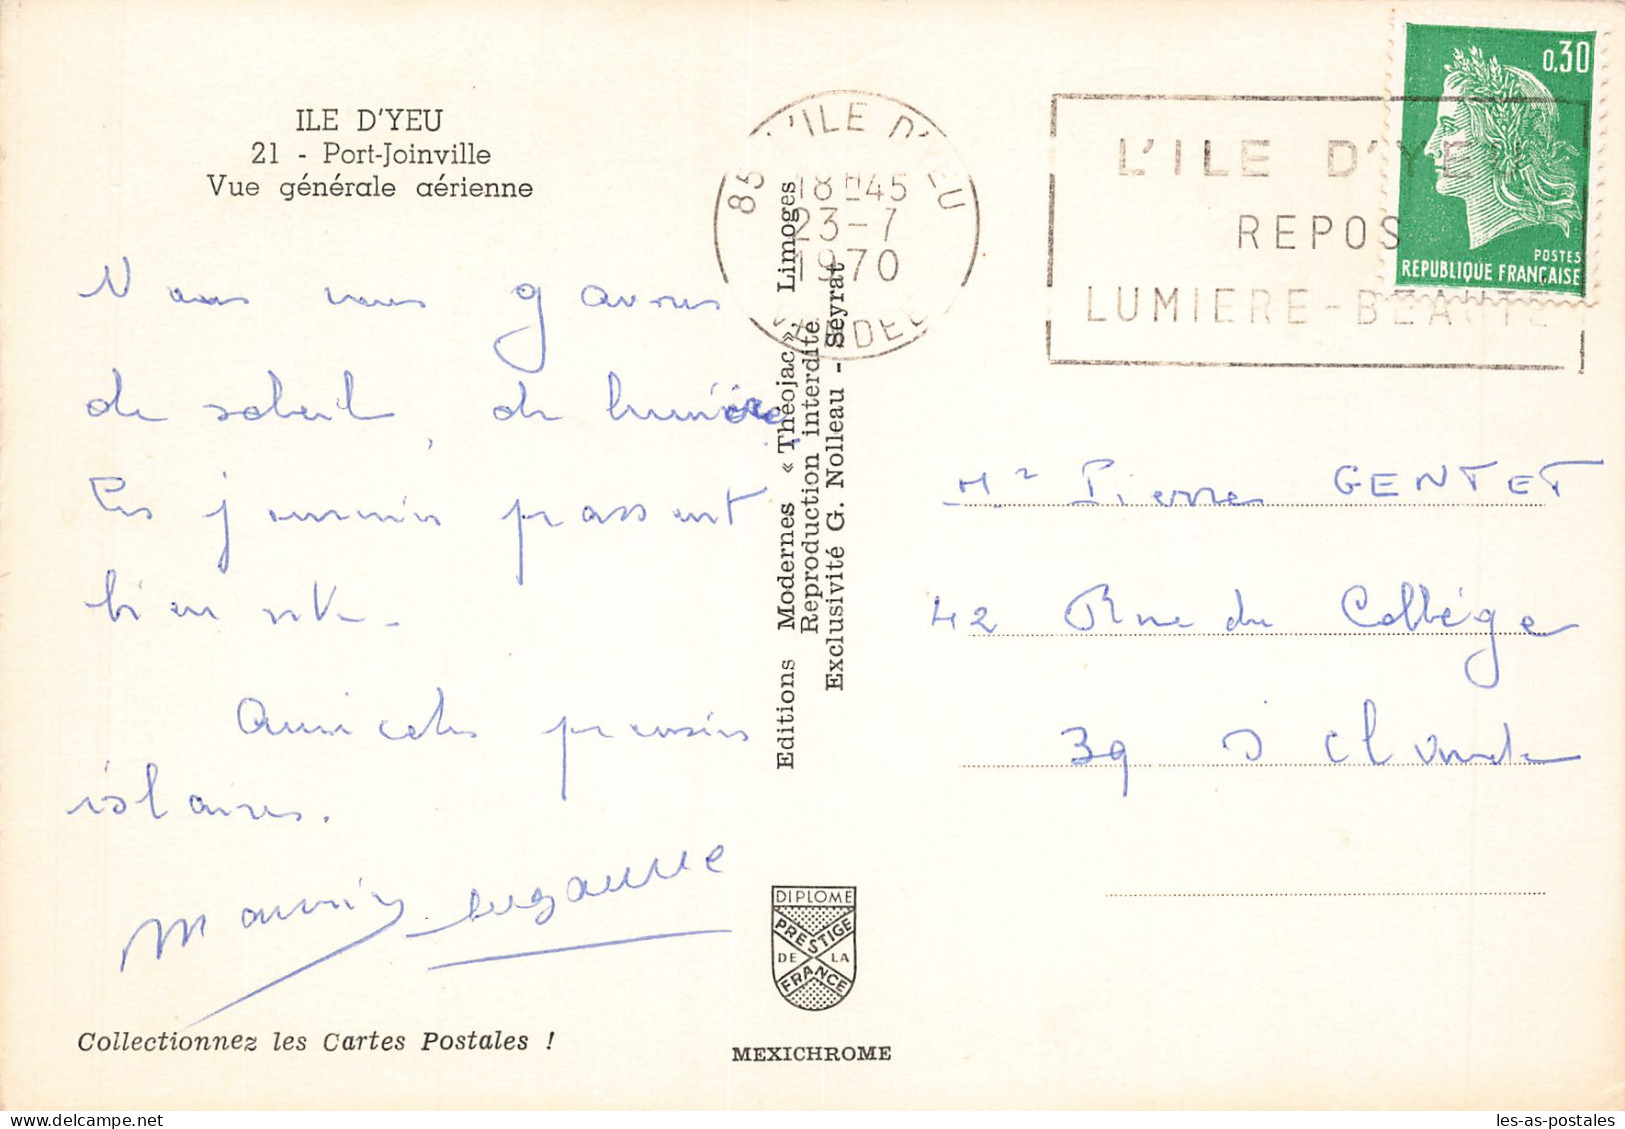 ILE D'YEU
21 - Port-Joinville
Vue générale aérienne
Nous nous gavons
de soleil, de lumière
Les journées passent
bien vite.
Amicales pensées
islaises.
Maurice
Collectionnez les Cartes Postales !
Editions Modernes « Théojac », Limoges
Reproduction interdite
Exclusivité G. Nolleau - Seyrat
DIPLOME
PRESTIGE
DE LA
FRANCE
MEXICHROME
85 L'ILE D'YEU
18H45
23-7
1970
VENDEE
L'ILE D'YEU
REPOS
LUMIERE-BEAUTE
0,30
POSTES
REPUBLIQUE FRANÇAISE
Mr Pierre GENTET
42 Rue du Collège
39 S Claude
les-as-postales